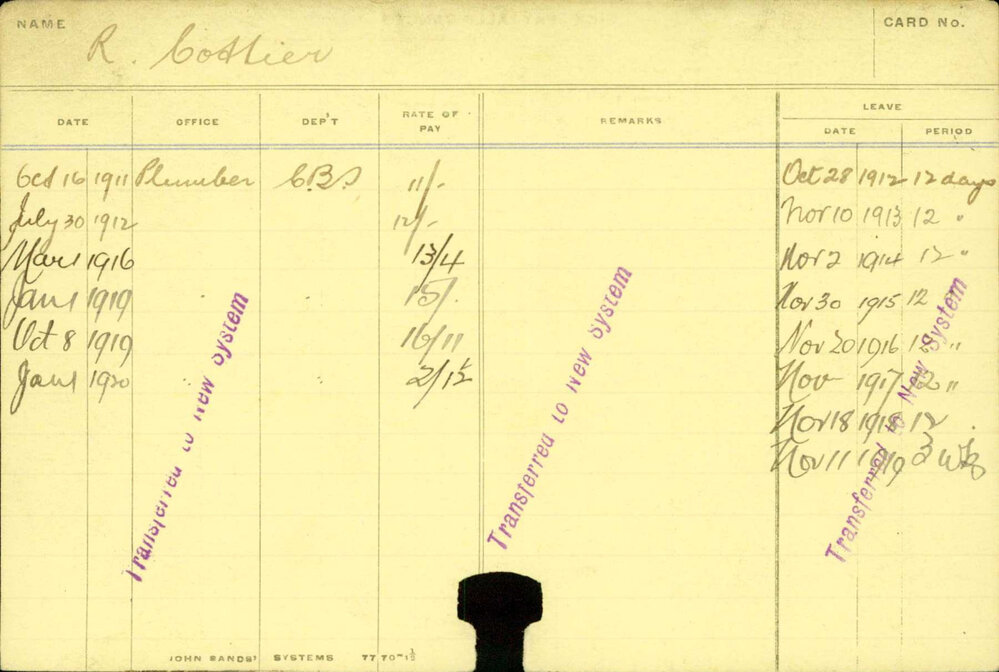 NAME R. Cottier CARD No.
LEAVE
DATE OFFICE DEP'T RATE OF PAY REMARKS DATE PERIOD
Oct 16 1911 Plumber C.B.S 11/- Oct 28 1912 12 days
July 30 1912 12/- Nov 10 1913 12 "
Mar 1 1916 13/4 Nov 2 1914 12 "
Jan 1 1919 15/- Nov 30 1915 12
Oct 8 1919 16/11 Nov 20 1916 12 "
Jan 1 1920 Nov 1917 12 "
Nov 18 1918 12
Nov 11 1919 3 wks
Transferred to New System
Transferred to New System
Transferred to New System
JOHN SANDS' SYSTEMS 7770-1½